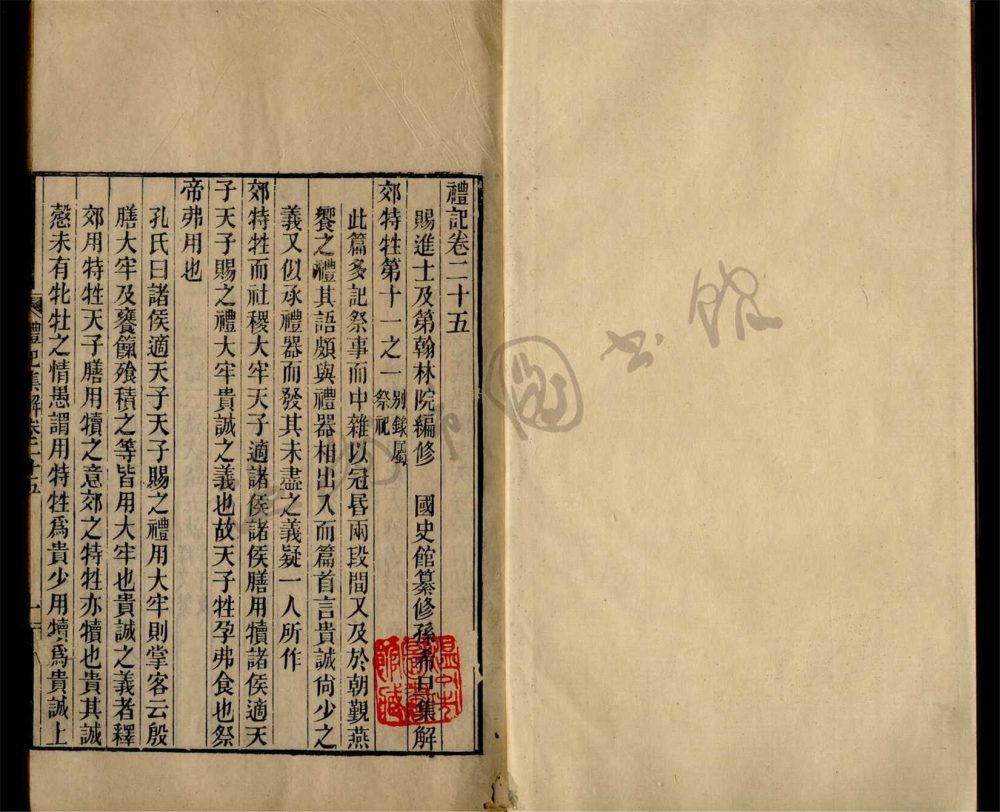 禮記卷二十五
賜進士及第翰林院編修　國史館纂修孫希旦集解
郊特牲第十一之一
別錄屬
祭祀
此篇多記祭事而中雜以冠昏兩段間又及於朝覲燕
饗之禮其語頗與禮器相出入而篇首言貴誠尙少之
義又似承禮器而發其未盡之義疑一人所作
郊特牲而社稷大牢天子適諸侯諸侯膳用犢諸侯適天
子天子賜之禮大牢貴誠之義也故天子牲孕弗食也祭
帝弗用也
孔氏曰諸侯適天子天子賜之禮用大牢則掌客云殷
膳大牢及饔餼飱積之等皆用大牢也貴誠之義者釋
郊用特牲天子膳用犢之意郊之特牲亦犢也貴其誠
慤未有牝牡之情愚謂用特牲爲貴少用犢爲貴誠上
禮記集解卷二十五
一
圖書館